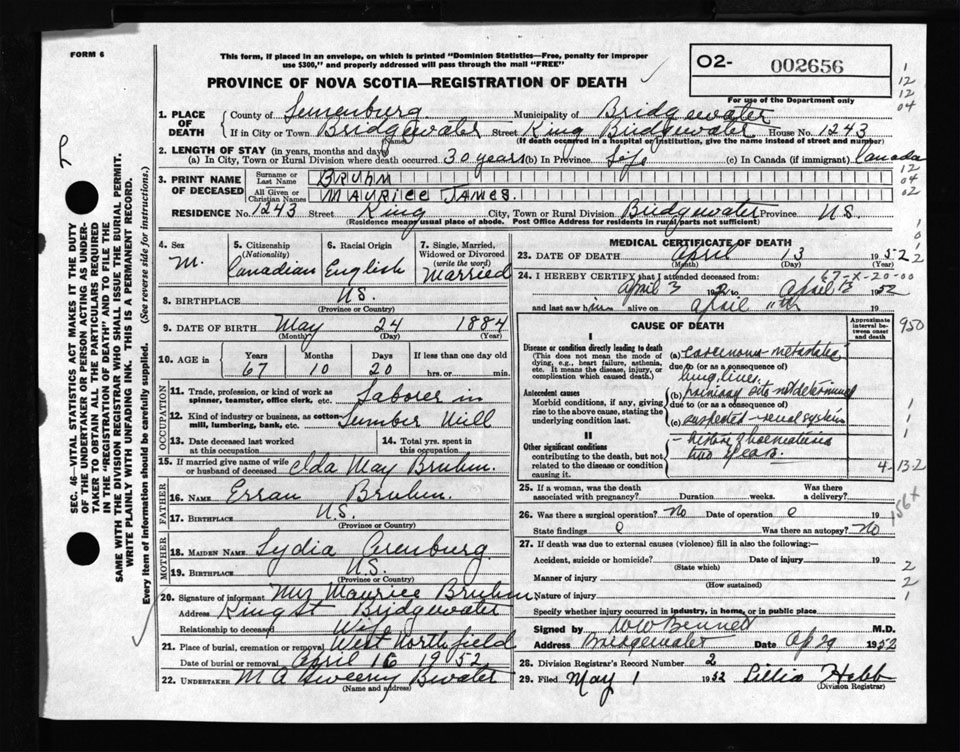 FORM 6
This form, if placed in an envelope, on which is printed "Dominion Statistics—Free, penalty for improper
use $300," and properly addressed will pass through the mail "FREE"
PROVINCE OF NOVA SCOTIA—REGISTRATION OF DEATH
O2- 002656
For use of the Department only
1. PLACE OF DEATH
County of Lunenburg Municipality of Bridgewater
If in City or Town Bridgewater Street King Bridgewater House No. 1243
(Name) (If death occurred in a hospital or institution, give its name instead of street and number)
2. LENGTH OF STAY (in years, months and days)
(a) In City, Town or Rural Division where death occurred 30 years (b) In Province Life (c) In Canada (if immigrant) Canada
3. PRINT NAME OF DECEASED
Surname or Last Name BRUHM
All Given or Christian Names MAURICE JAMES.
RESIDENCE No. 1243 Street King City, Town or Rural Division Bridgewater Province N.S.
(Residence means usual place of abode. Post Office Address for residents in rural parts not sufficient)
4. Sex M.
5. Citizenship (Nationality) Canadian
6. Racial Origin English
7. Single, Married, Widowed or Divorced (write the word) Married
8. BIRTHPLACE N.S.
(Province or Country)
9. DATE OF BIRTH May 24 1884
(Month) (Day) (Year)
10. AGE in Years 67 Months 10 Days 20 If less than one day old
hrs. or min.
OCCUPATION
11. Trade, profession, or kind of work as spinner, teamster, office clerk, etc. Laborer in
12. Kind of industry or business, as cotton-mill, lumbering, bank, etc. Lumber Mill
13. Date deceased last worked at this occupation
14. Total yrs. spent in this occupation
15. If married give name of wife or husband of deceased Elda May Bruhm.
FATHER
16. NAME Erran Bruhm.
17. BIRTHPLACE N.S.
(Province or Country)
MOTHER
18. MAIDEN NAME Lydia Arenburg
19. BIRTHPLACE N.S.
(Province or Country)
20. Signature of informant Mrs Maurice Bruhm
Address King St Bridgewater
Relationship to deceased Wife
21. Place of burial, cremation or removal West Northfield
Date of burial or removal April 16 1952
22. UNDERTAKER M A Sweeny B'water
(Name and address)
MEDICAL CERTIFICATE OF DEATH
23. DATE OF DEATH April 13 1952
(Month) (Day) (Year)
24. I HEREBY CERTIFY that I attended deceased from: 67-X-20-00
April 3 1952 to April 13 1952
and last saw him alive on April 11th 19
CAUSE OF DEATH
Approximate interval between onset and death
I
Disease or condition directly leading to death
(This does not mean the mode of dying, e.g., heart failure, asthenia, etc. It means the disease, injury, or complication which caused death.)
(a) carcinoma metastatic
due to (or as a consequence of)
lung, liver.
Antecedent causes
Morbid conditions, if any, giving rise to the above cause, stating the underlying condition last.
(b) primary site not determined
due to (or as a consequence of)
(c) suspected - renal system
II
Other significant conditions
contributing to the death, but not related to the disease or condition causing it.
- history of haematuria
two years.
25. If a woman, was the death associated with pregnancy? Duration weeks. Was there a delivery?
26. Was there a surgical operation? No Date of operation 0 19
State findings 0 Was there an autopsy? No
27. If death was due to external causes (violence) fill in also the following:—
Accident, suicide or homicide? Date of injury 19
(State which)
Manner of injury
(How sustained)
Nature of injury
Specify whether injury occurred in industry, in home, or in public place
Signed by W W Bennett M.D.
Address Bridgewater Ap 29 1952
28. Division Registrar's Record Number 2
29. Filed May 1 1952 Lillia Hebb
(Division Registrar)
SEC. 46—VITAL STATISTICS ACT MAKES IT THE DUTY
OF THE UNDERTAKER OR PERSON ACTING AS UNDER-
TAKER TO OBTAIN ALL THE PARTICULARS REQUIRED
IN THE "REGISTRATION OF DEATH" AND TO FILE THE
SAME WITH THE DIVISION REGISTRAR WHO SHALL ISSUE THE BURIAL PERMIT.
WRITE PLAINLY WITH UNFADING INK. THIS IS A PERMANENT RECORD.
Every item of information should be carefully supplied. (See reverse side for instructions.)
1
12
12
04
12
04
02
950
4-13-2
156+
2
2
1